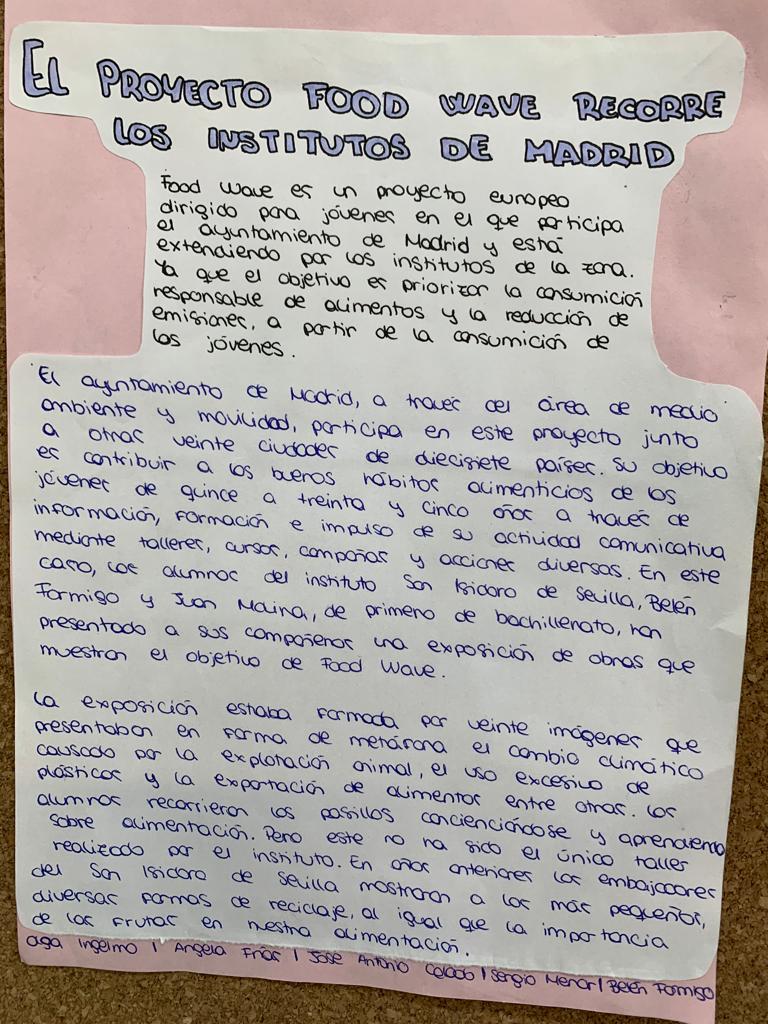 EL PROYECTO FOOD WAVE RECORRE
LOS INSTITUTOS DE MADRID
Food Wave es un proyecto europeo
dirigido para jóvenes en el que participa
el ayuntamiento de Madrid y está
extendiendo por los institutos de la zona.
Ya que el objetivo es priorizar la consumición
responsable de alimentos y la reducción de
emisiones, a partir de la consumición de
los jóvenes.
El ayuntamiento de Madrid, a través del área de medio
ambiente y movilidad, participa en este proyecto junto
a otras veinte ciudades de diecisiete países. Su objetivo
es contribuir a los buenos hábitos alimenticios de los
jóvenes de quince a treinta y cinco años a través de
información, formación e impulso de su actividad comunicativa
mediante talleres, cursos, campañas y acciones diversas. En este
caso, los alumnos del instituto San Isidoro de Sevilla, Belén
Formigo y Juan Maina, de primero de bachillerato, han
presentado a sus compañeros una exposición de obras que
muestran el objetivo de Food Wave.
La exposición estaba formada por veinte imágenes que
presentaban en forma de metáfora el cambio climático
causado por la explotación animal, el uso excesivo de
plásticos y la exportación de alimentos entre otras. Los
alumnos recorrieron los pasillos concienciándose y aprendiendo
sobre alimentación. Pero este no ha sido el único taller
realizado por el instituto. En años anteriores los embajadores
del San Isidoro de Sevilla mostraron a los más pequeños,
diversas formas de reciclaje, al igual que la importancia
de las frutas en nuestra alimentación.
Olga Ingelmo | Angela Frías | Jose Antonio Colado | Sergio Menor | Belén Formigo